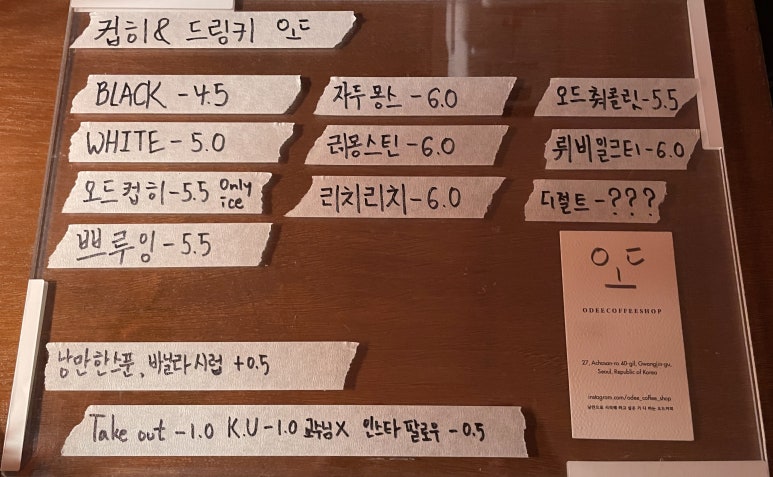 컵히 & 드링키 오드
BLACK - 4.5
WHITE - 5.0
오드컵히 - 5.5 only ice
쁘루잉 - 5.5
자두몽스 - 6.0
레몽스틴 - 6.0
리치리치 - 6.0
오드춰콜릿 - 5.5
뤼비밀크티 - 6.0
디젙트 - ???
낭만한스푼, 바닐라시럽 +0.5
Take out - 1.0 K.U - 1.0 교수님X 인스타 팔로우 - 0.5
오드
ODEECOFFEESHOP
27, Achasan-ro 40-gil, Gwangjin-gu,
Seoul, Republic of Korea
instagram.com/odee_coffee_shop